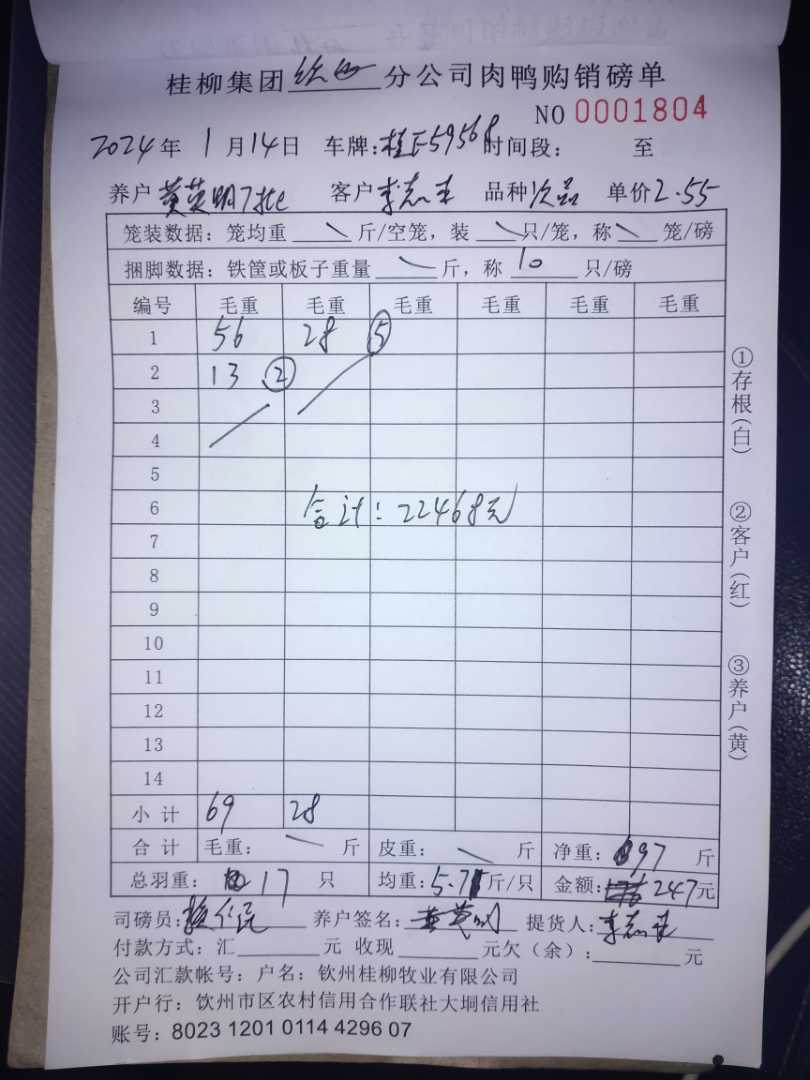 桂柳集团钦州分公司肉鸭购销磅单
NO 0001804
2024年 1月14日 车牌:桂E59568 时间段: 至
养户 黄英明7批 客户 李志 品种 次品 单价 2.55
笼装数据: 笼均重 斤/空笼, 装 只/笼, 称 笼/磅
捆脚数据: 铁筐或板子重量 斤, 称 10 只/磅
编号 毛重 毛重 毛重 毛重 毛重 毛重
1 56 28 ⑤
2 13 ②
3
4
5
6 合计: 22468元
7
8
9
10
11
12
13
14
小计 69 28
合计 毛重: 斤 皮重: 斤 净重: 97 斤
总羽重: 17 只 均重: 5.71斤/只 金额: 247元
司磅员: 养户签名: 黄英明 提货人: 李志
付款方式: 汇 元 收现 元欠(余): 元
公司汇款帐号: 户名: 钦州桂柳牧业有限公司
开户行: 钦州市区农村信用合作联社大垌信用社
账号: 8023 1201 0114 4296 07
①存根(白)
②客户(红)
③养户(黄)